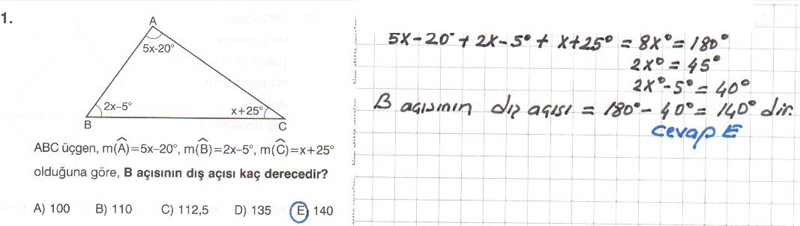 1.
A
5x-20°
2x–5°
x+25°
B
C
ABC üçgen, m(Â)=5x–20°, m(B̂)=2x–5°, m(Ĉ)=x+25°
olduğuna göre, B açısının dış açısı kaç derecedir?
A) 100 B) 110 C) 112,5 D) 135 E) 140
5x-20° + 2x-5° + x+25° = 8x° = 180°
2x° = 45°
2x°-5° = 40°
B açısının dış açısı = 180° - 40° = 140° dir.
cevap E